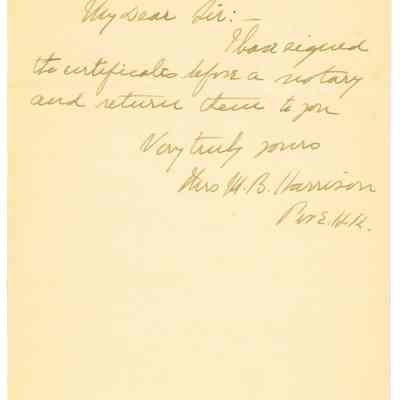 My Dear Sir:—
I have signed
the certificates before a notary
and return them to you
Very truly yours
Mrs M. B. Harrison
Per E.H.H.